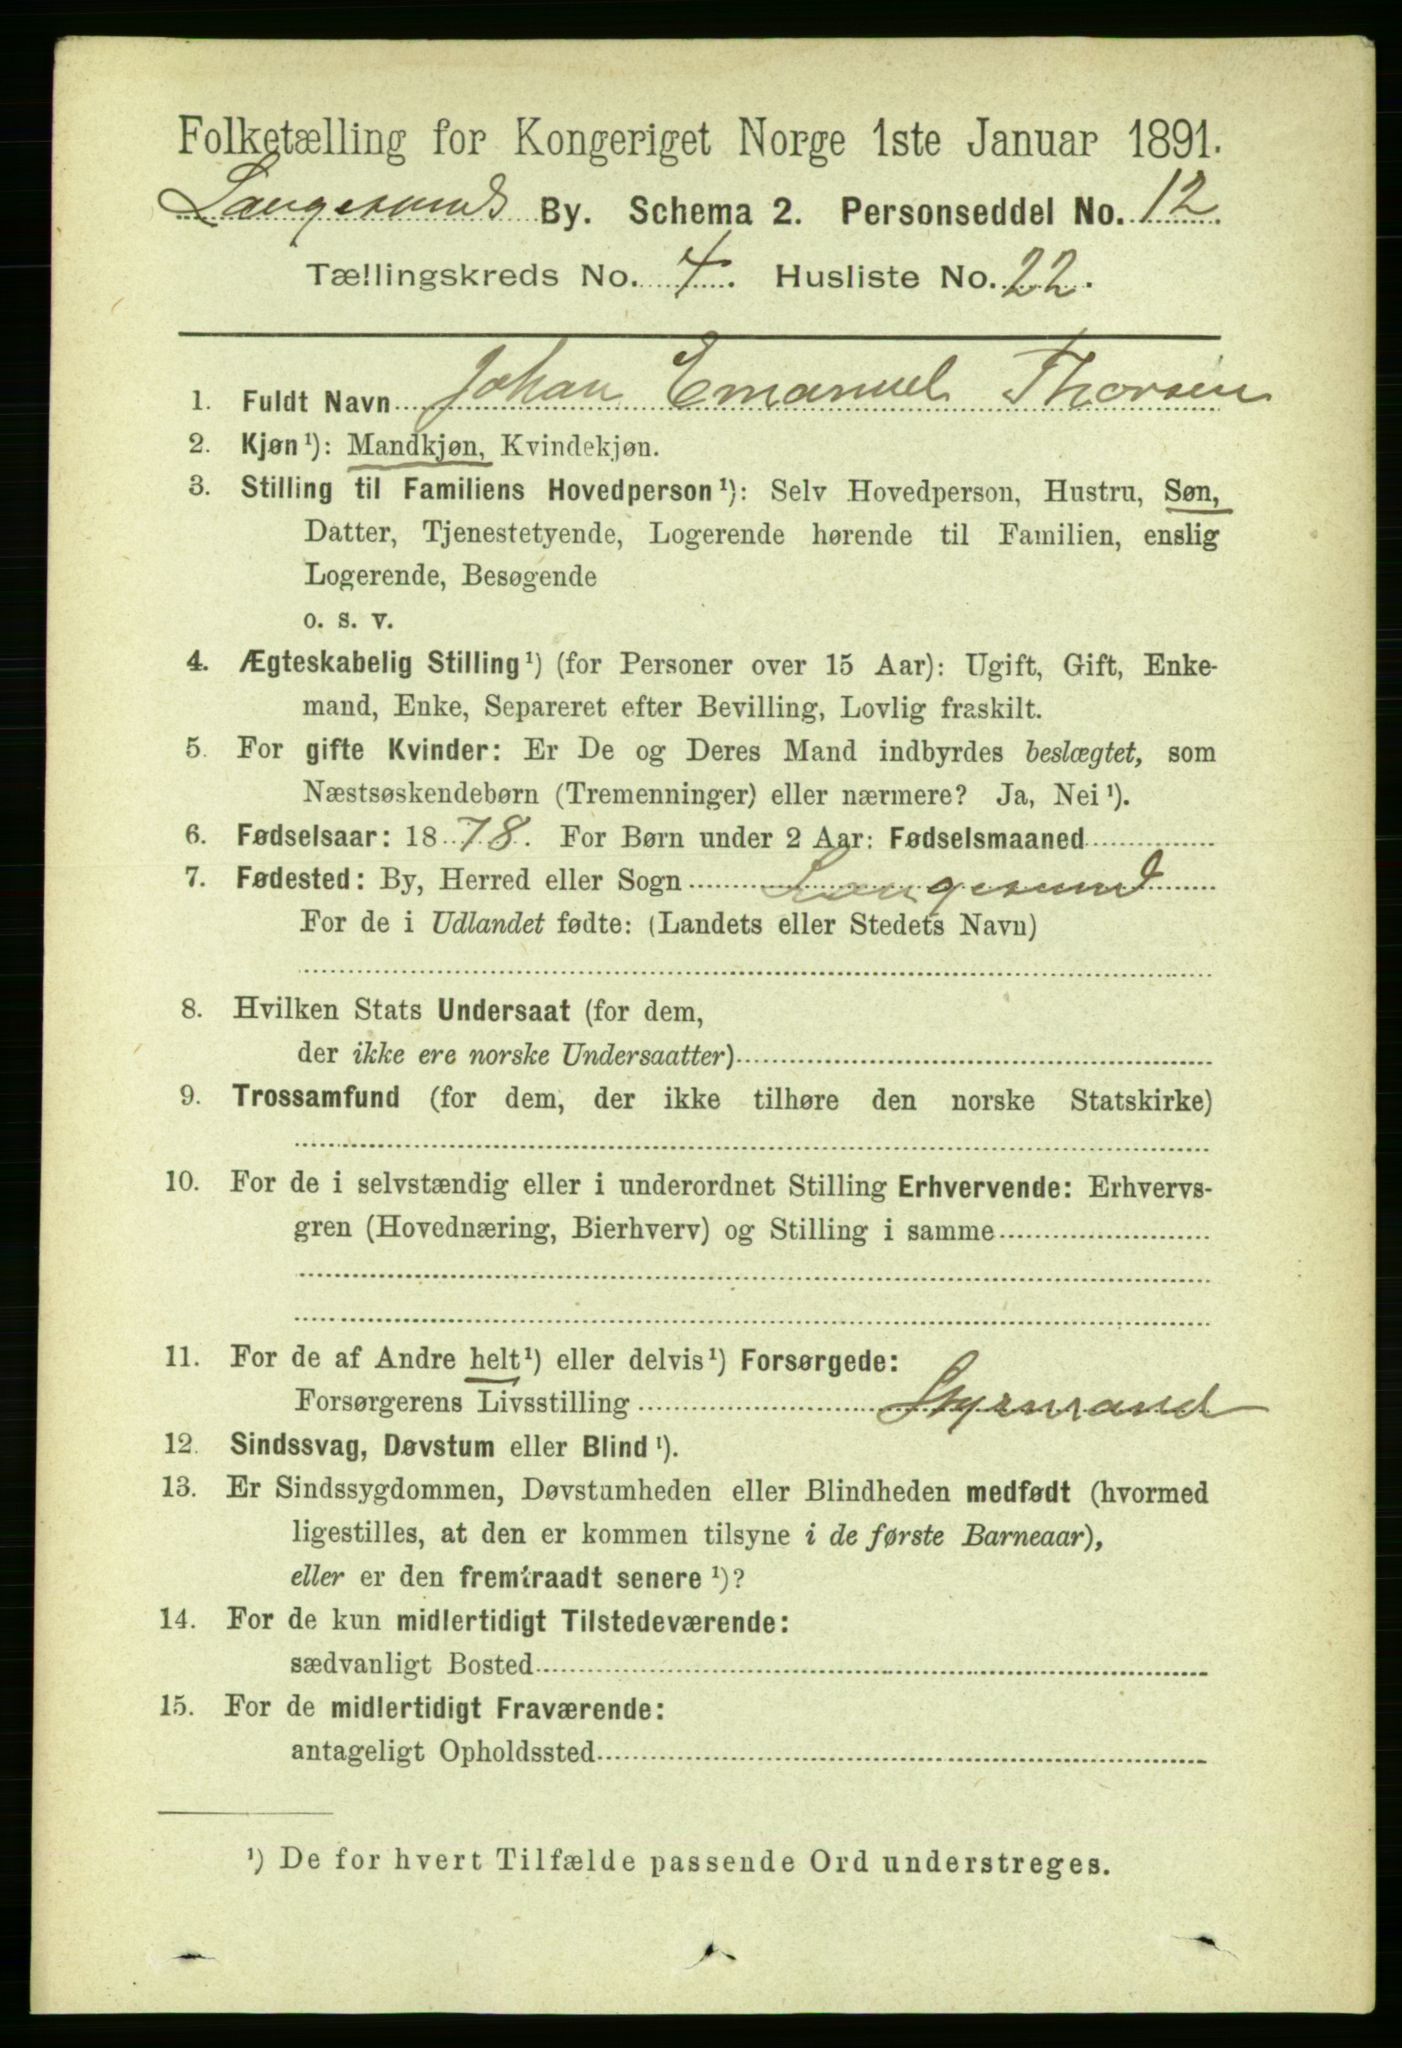 Folketælling for Kongeriget Norge 1ste Januar 1891.
Langesunds By. Schema 2. Personseddel No. 12
Tællingskreds No. 4. Husliste No. 22.
1. Fuldt Navn Johan Emanuel Thorsen
2. Kjøn¹): Mandkjøn, Kvindekjøn.
3. Stilling til Familiens Hovedperson¹): Selv Hovedperson, Hustru, Søn,
Datter, Tjenestetyende, Logerende hørende til Familien, enslig
Logerende, Besøgende
o. s. v.
4. Ægteskabelig Stilling¹) (for Personer over 15 Aar): Ugift, Gift, Enke-
mand, Enke, Separeret efter Bevilling, Lovlig fraskilt.
5. For gifte Kvinder: Er De og Deres Mand indbyrdes beslægtet, som
Næstsøskendebørn (Tremenninger) eller nærmere? Ja, Nei¹).
6. Fødselsaar: 1878. For Børn under 2 Aar: Fødselsmaaned
7. Fødested: By, Herred eller Sogn Langesund
For de i Udlandet fødte: (Landets eller Stedets Navn)
8. Hvilken Stats Undersaat (for dem,
der ikke ere norske Undersaatter)
9. Trossamfund (for dem, der ikke tilhøre den norske Statskirke)
10. For de i selvstændig eller i underordnet Stilling Erhvervende: Erhvervs-
gren (Hovednæring, Bierhverv) og Stilling i samme
11. For de af Andre helt¹) eller delvis¹) Forsørgede:
Forsørgerens Livsstilling Styrmand
12. Sindssvag, Døvstum eller Blind¹).
13. Er Sindssygdommen, Døvstumheden eller Blindheden medfødt (hvormed
ligestilles, at den er kommen tilsyne i de første Barneaar),
eller er den fremtraadt senere¹)?
14. For de kun midlertidigt Tilstedeværende:
sædvanligt Bosted
15. For de midlertidigt Fraværende:
antageligt Opholdssted
¹) De for hvert Tilfælde passende Ord understreges.